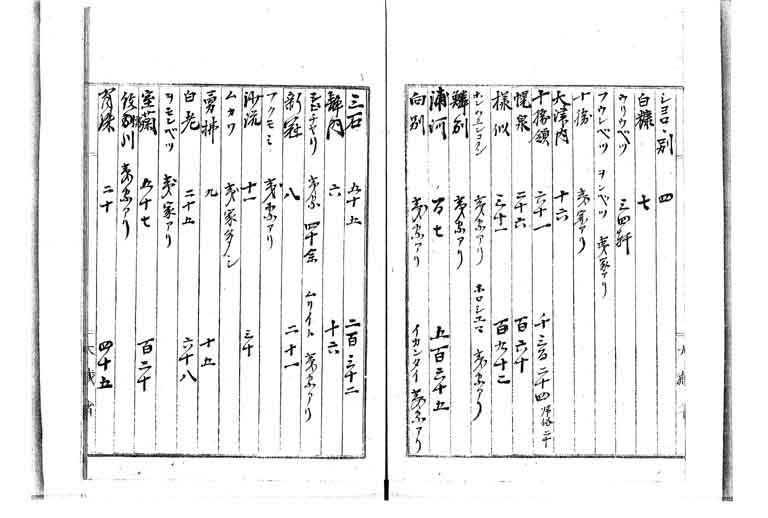 シヨロ、別 四
白糠 七
クリウベツ 三四軒
フウンベツ ヲンベツ 夷家アリ
十勝 夷家アリ
大津内 十六
十勝領 六十一 千三百二十四
幌泉 二十六 百六十
様似 三十一 百九十二
夷家アリ ホロシユマ 夷家アリ
鱗別 夷家アリ
浦河 百七 五百三十五
向別 夷家アリ イカンタイ 夷家アリ
三石 五十五 二百三十二
静内 六 十六
夷家 四十余 ムリイト 夷家アリ
新冠 八 二十一
アクモミ 夷家アリ
沙流 十一 三十
ムカワ 夷家多シ
勇拂 九 十五
白老 二十五 六十八
ヲモンベツ 夷家アリ
室蘭 五十七 百二十
夷家アリ
有珠 二十 四十五
大蔵省